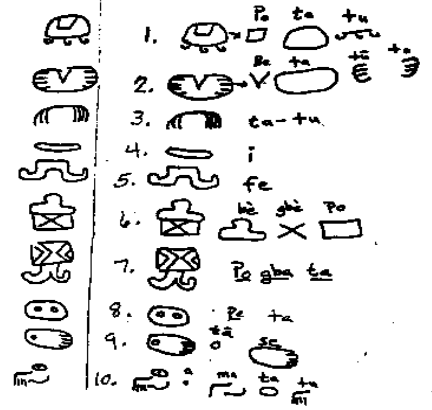 1. Po ta tu
2. Be ta tū
3. ta-tu
4. i
5. fe
6. bè gbè Po
7. Po gba ta
8. Pe ta
9. tā se
10. a ma ta tu